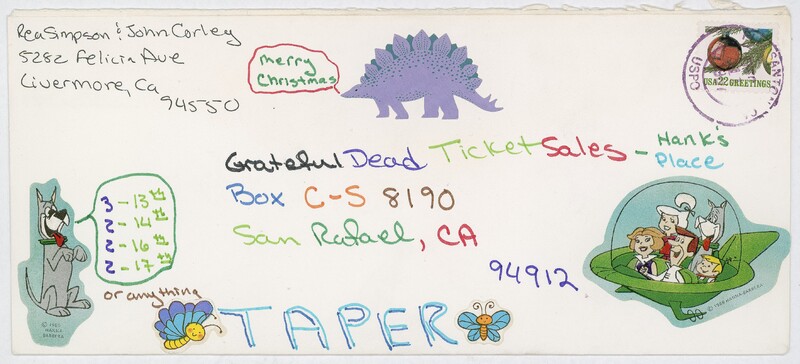 Rea Simpson & John Corley
5282 Felicia Ave
Livermore, Ca
94550
merry
Christmas
USA 22 GREETINGS
USPO
Grateful Dead Ticket Sales - Hank's
Place
Box C-S 8190
San Rafael, CA
94912
3 - 13th
2 - 14th
2 - 16th
2 - 17th
or anything
TAPER
HANNA
BARBERA